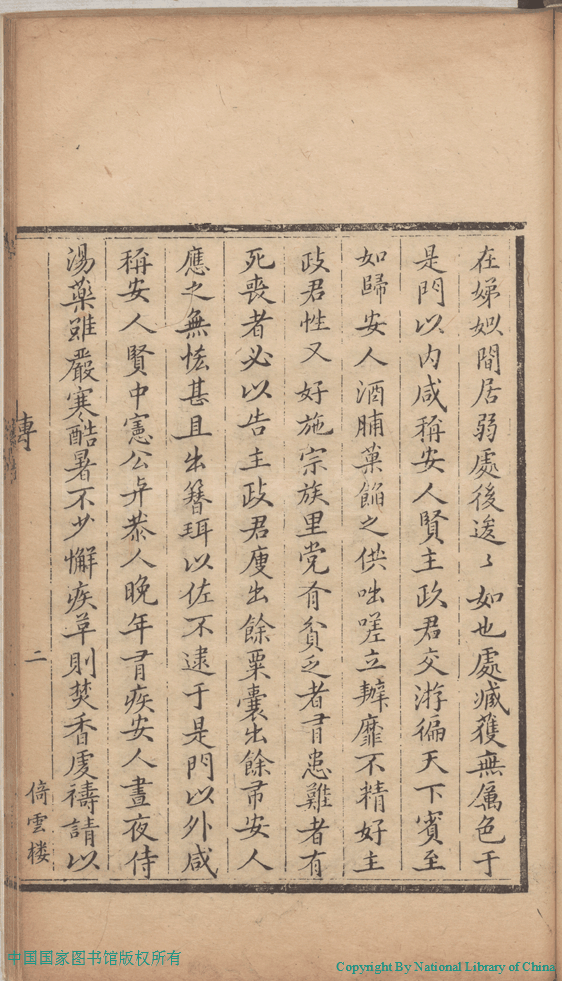 在娣姒間居弱處後逡〻如也處臧獲無厲色于
是門以内咸稱安人賢主政君交游徧天下賓至
如歸安人酒脯菓餡之供咄嗟立辦靡不精好主
政君性又好施宗族里党有貧乏者有患難者有
死喪者必以告主政君廋出餘粟囊出餘帛安人
應之無恡甚且出簪珥以佐不逮于是門以外咸
稱安人賢中憲公與恭人晚年有疾安人晝夜侍
湯藥雖嚴寒酷暑不少懈疾革則焚香虔禱請以
傳
二
倚雲楼
中国国家图书馆版权所有
Copyright By National Library of China